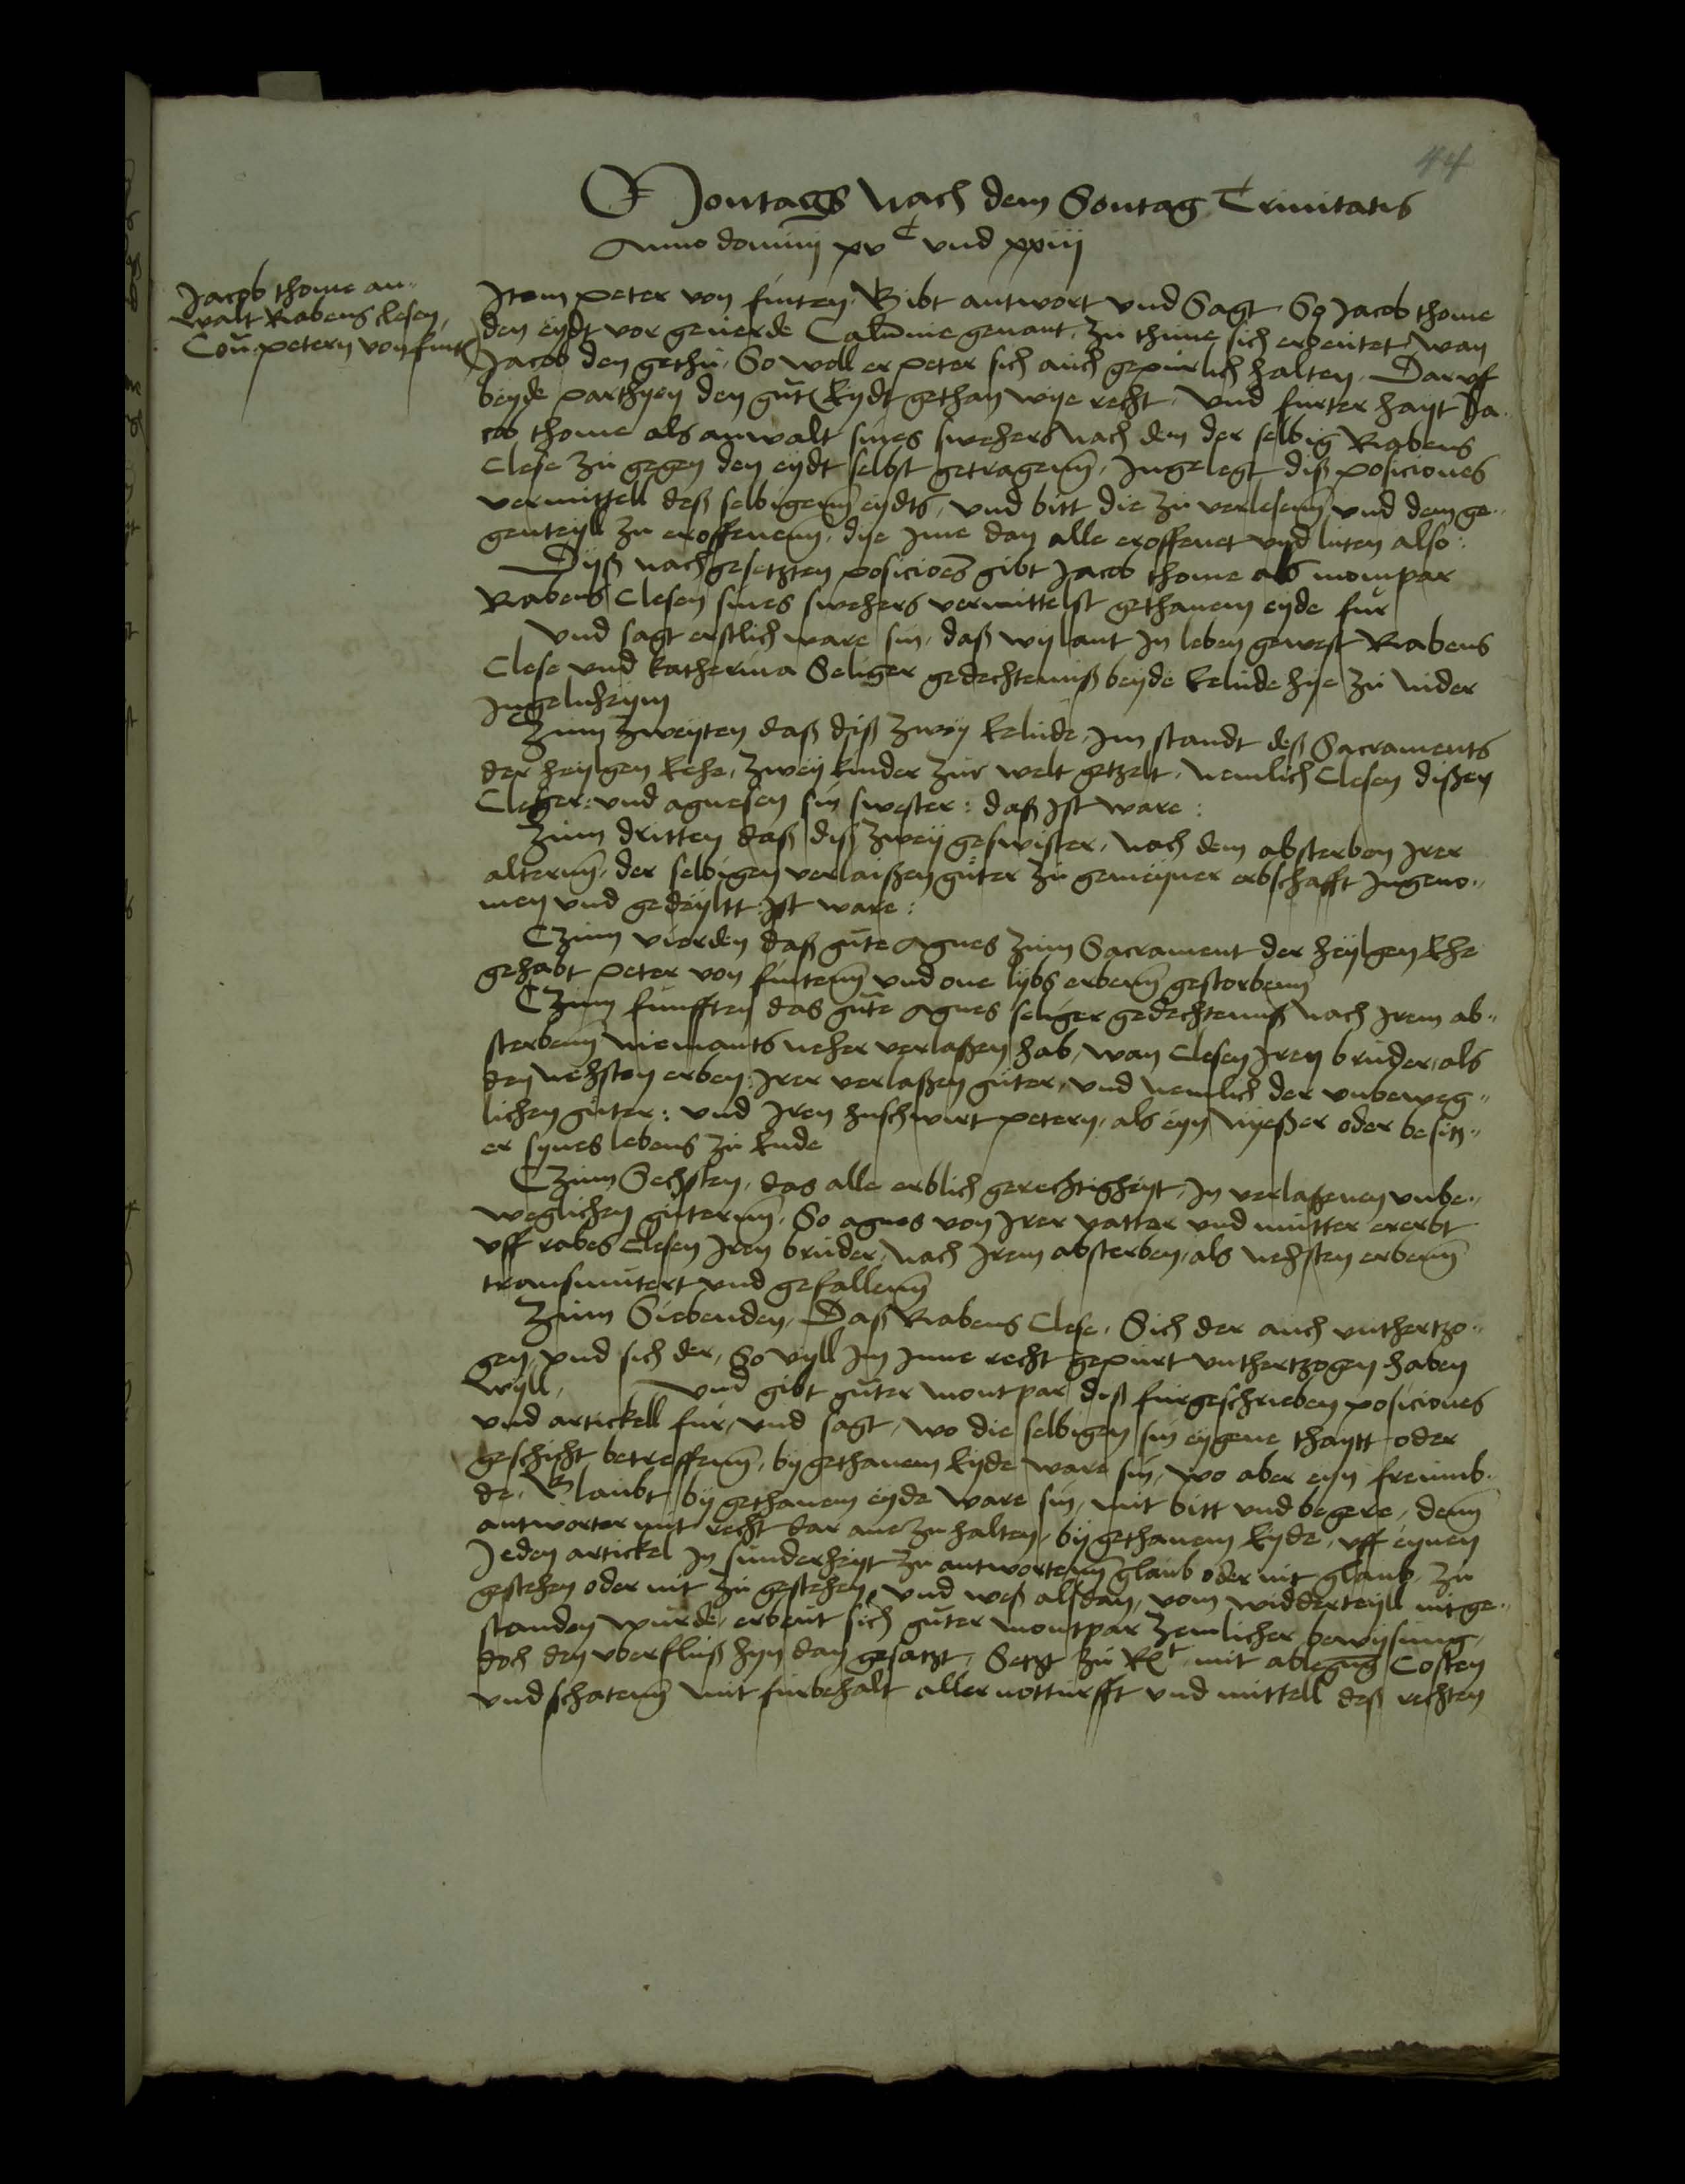 44
Montags Nach dem Sontag Trinitatis
Anno domini xvᶜ und xxiij
Jacob thome an-
walt Rabens Clesen,
Con. petern von fint
Item peter von finten. Gibt antwort und Sagt So Jacob thome
den eydt vor geuerde Calumnie genant, zu thune sich erbeutet, wan
Jacob den gethu, So woll er peter sich auch gepurlich halten. Daruf
beyde parthyen den gut Eydt gethan wye recht, Und furter hayt Ja-
cob thome als anwalt sines swehers nach dem der selbig Rabens
Clese zu gegen den eydt selbst getragenn, Ingelegt diß posiciones
vermittell deß selbigenn eydts, und bitt die zu verlesenn und dem ge-
genteyll zu eroffenenn, dye Ime dan alle eroffenet und luten also:
Dyß nachgesetzten posicioes gibt Jacob thome als mompar
Rabens Clesen sines swehers vermittelst gethanem eyde fur
Und sagt erstlich ware sin, daß wylant In leben gewest Rabens
Clese und katherina Seliger gedechtenniß beyde Eelude hye zu Nider
Ingelnheym
Zum Zweyten daß diß zwey Eelude, Im standt deß Sacraments
der heylgen Eehe, zwey kinder zur welt getzelt, Nemlich Clesen dißen
Cleger: und agnesen sin swester: daß Ist ware:
Zum dritten daß diß zwey geswister, Nach dem absterben Irer
alternn, der selbigen verlaißen guter zu gemeyner erbschafft Ingeno-
men und gedeyltt: Ist ware:
Czum vierden daß gute Agnes zum Sacrament der heylgen Ehe
gehabt peter von fintenn und one lybs erbenn gestorbenn
Czum funfften das gute Agnes seliger gedechtenuß nach Irem ab-
sterbenn Niemants neher verlaßen hab, wan Clesen Iren bruder, als
den Nehsten erben: Irer verlaßen guter, und Nemlich der unbeweg-
lichen guter: und Iren huschwirt petern, als eyn Nyeßer oder besitz-
er synes lebens zu Ende
Czum Sechsten, das alle erblich gerechtigheyt, In verlaßenen unbe-
weglichen guternn, So agnes von Irer vatter und mutter ererbt
uff rabes Clesen Iren bruder, Nach Irem absterben, als nehsten erbenn
transmutert und gefallenn
Zum Siebenden, Daß Rabens Clese, Sich der auch underzo-
gen, und sich der, So vyll Im Inne recht gepurt undertzogen haben
Wyll, Und gibt guter montpar diß furgeschrieben posiciones
und artickell fur, und sagt, wo die selbigen sin eygene thaytt oder
geschicht betreffenn, by gethanem Eyde ware sin, wo aber eyn freimb-
de, Glaubt by gethanem eyde ware sin, mit bitt und begere, denn
antworter mit recht dar ane zu halten, by gethanem Eyde, uff eynen
Jeden artickel In sunderheyt zu antwortenn glaub oder nit glaub, zu
gestehen oder nit zu gestehen, und weß alsdan, vom widderteyll nit ge-
standen wurde, erbeut sich guter montpar zemlicher bewysung,
doch den uberfluß hyn dan gesatzt, Setzt zu Rᵗ mit ablegung Costen
und schatenn mit furbehalt aller notturfft und mittell deß rechten